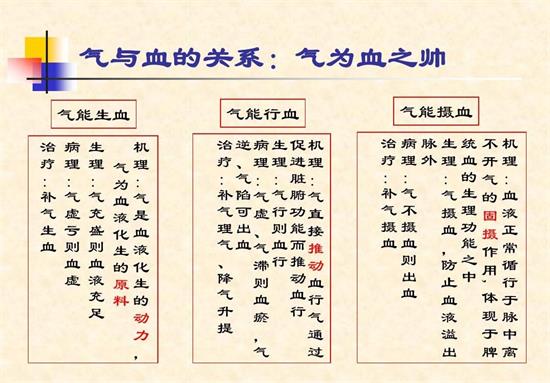 气与血的关系：气为血之帅
气能生血
机理:气是血液化生的动力，
气为血液化生的原料
生理:气充盛则血液充足
病理:气虚亏则血虚
治疗:补气生血
气能行血
机理:气直接推动血行气通过
促进脏腑功能而推动血行
生理:气行则血行
病理:气虚、气滞则血瘀,气
逆、气陷可出血
治疗:补气理气、降气升提
气能摄血
机理:血液正常循行于脉中离
不开气的固摄作用,体现于脾
统血的生理功能之中
生理:气摄血,防止血液溢出
脉外
病理:气不摄血则出血
治疗:补气摄血